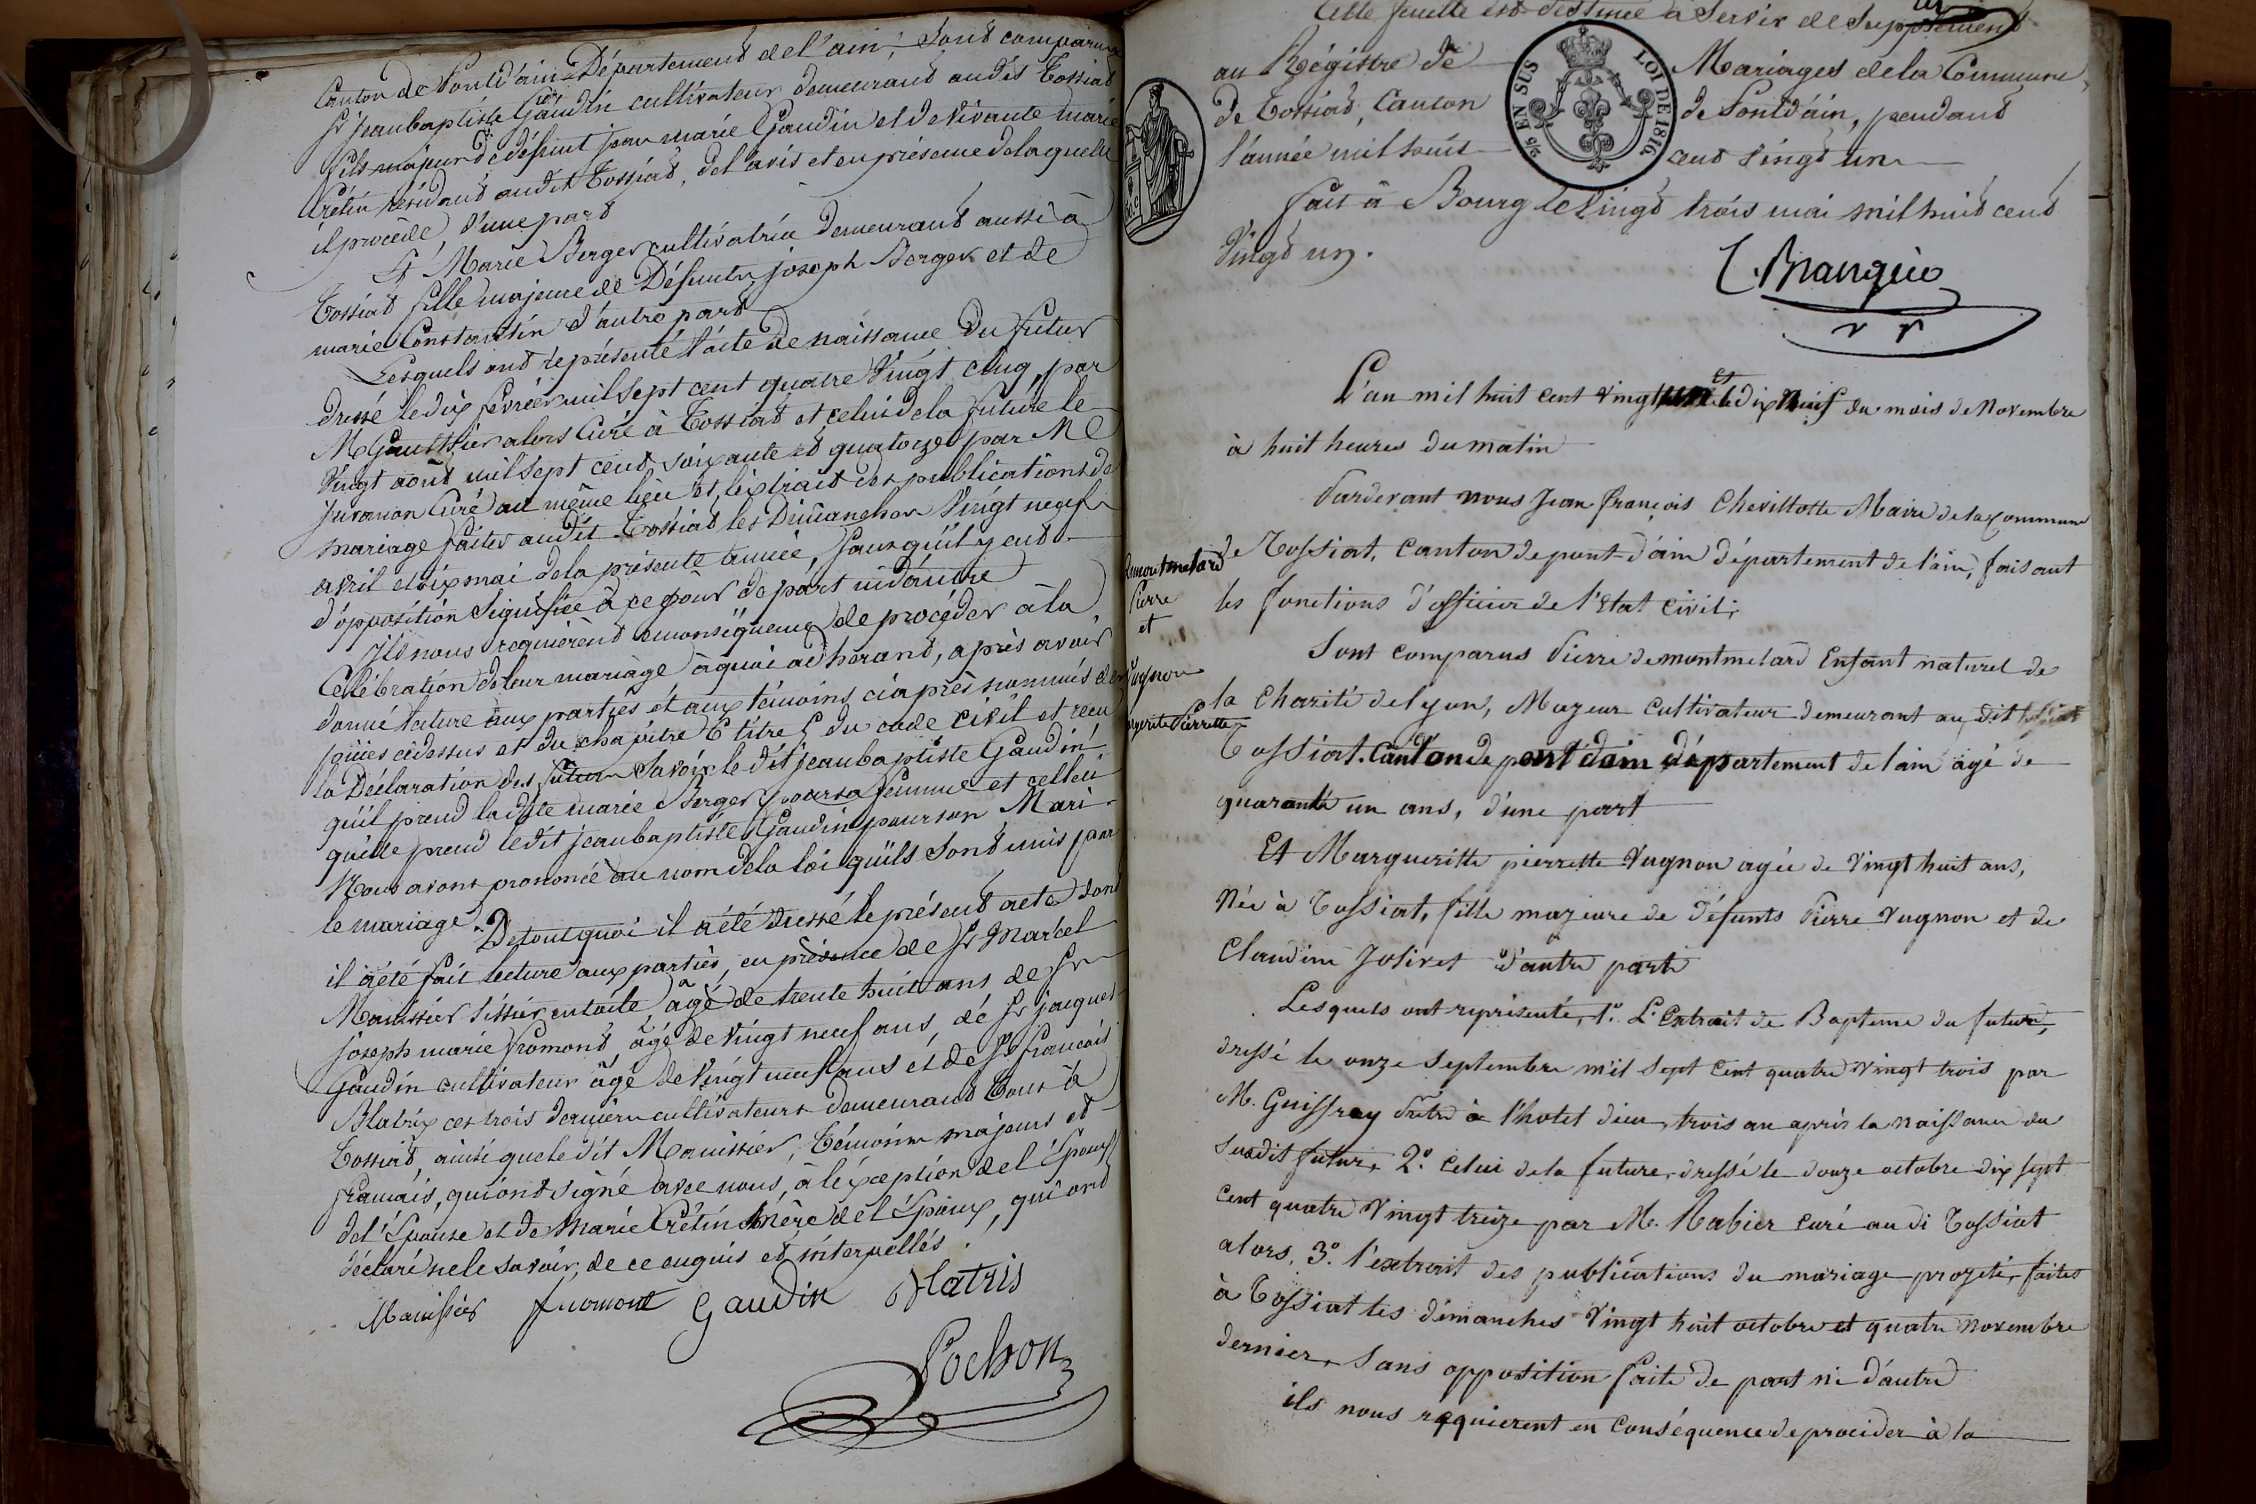 Canton de Pontd'ain Département de l'ain; Sont comparus
Sr jean baptiste Gaudin cultivateur demeurant audit Tossiat
fils majeur de défunt jean marie Gaudin et de vivante marie
Crétin résidant audit Tossiat, de l'avis et en présence de laquelle
il procède, d'une part
Et Marie Berger cultivatrice demeurant aussi à
Tossiat fille majeure de Défunts joseph Berger et de
marie Constantin d'autre part
Lesquels ont représenté l'acte de naissance du futur
dressé le dix février mil sept cent quatre Vingt cinq, par
M Gauthier alors Curé à Tossiat et celui de la future le
Vingt août mil sept cent soixante et quatorze par M
Curé au même lieu et l'extrait des publications de
mariage faites audit Tossiat les Dimanches Vingt neuf
avril et six mai de la présente année, sans qu'il y eut
d'opposition signifiée à ce jour de part ni d'autre
Ils nous requièrent en conséquence de procéder à la
Célébration de leur mariage à quoi adhérant, après avoir
donné lecture aux parties et aux témoins ci après nommés des
pièces cidessus et du chapitre 6 titre 5 du code civil et reçu
la Déclaration des futurs Savoir le dit jean baptiste Gaudin
qu'il prend la dite marie Berger pour sa femme et celle ci
qu'elle prend ledit jean baptiste Gaudin pour son Mari
Nous avons prononcé au nom de la loi qu'ils sont unis par
le mariage
De tout quoi il a été dressé le présent acte dont
il a été fait lecture aux parties, en présence de Sr Marcel
Manissier tissier en toile, âgé de trente huit ans de Sr
joseph marie fromont âgé de vingt neuf ans, de Sr jacques
Gaudin cultivateur âgé de Vingt neuf ans et de Sr francois
Blatrix ces trois derniers cultivateurs demeurant tous à
Tossiat, ainsi que le dit Manissier, témoins majeurs et
français, qui ont signé avec nous, à l'exception de l'Epoux
de l'Epouse et de Marie Crétin Mère de l'Epoux, qui ont
déclaré ne le savoir, de ce enquis et interpellés.
Manissier fromont Gaudin Blatris
Pochon
Cette feuille est destinée à Servir de Supplément
au Régistre de Mariages de la Commune
de Tossiat, Canton de Pontd'ain, pendant
l'année mil huit cent vingt un
5/6 EN SUS LOI DE 1816.
fait à Bourg le Vingt trois mai mil huit cent
Vingt un.
L'an mil huit cent vingt un et le dix Neuf du mois de Novembre
à huit heures du matin
Pardevant nous Jean françois Chevillotte Maire de la Commune
de Tossiat, Canton de pont d'ain département de l'ain, faisant
les fonctions d'officier de l'Etat Civil;
Demontmelard
Pierre
et
Vugnon
Pierrette
Sont comparus Pierre demontmelard Enfant naturel de
la Charité de lyon, Majeur cultivateur demeurant au dit
Tossiat. Canton de pont d'ain département de l'ain agé de
quarante un ans, d'une part
Et Margueritte pierrette Vugnon agée de Vingt huit ans,
Née à Tossiat, fille majeure de défunts Pierre Vugnon et de
Claudine Josivet d'autre part
Lesquels ont représenté, 1º. L'Extrait de Bapteme du futur,
dressé le onze Septembre mil Sept Cent quatre Vingt trois par
M. Guiffray Prêtre à l'hotel dieu, trois an après la Naissance du
Susdit futur, 2º. Celui de la future, dressé le douze octobre dix sept
Cent quatre Vingt treize par M. Rabier curé au di Tossiat
alors, 3º. l'extrait des publications du mariage projeté, faites
à Tossiat les dimanches Vingt huit octobre et quatre Novembre
dernier, Sans opposition faite de part ni d'autre
ils nous requierent en Conséquence de proceder à la